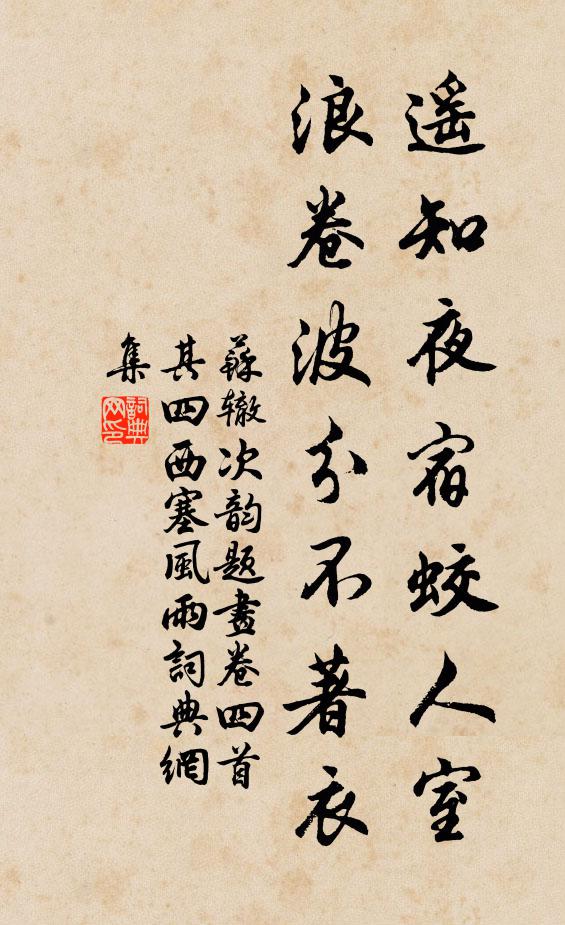 遥知夜宿蛟人室
浪卷波分不著衣
蘇辙次韵题畫卷四首
其四西塞風雨詞典網
集
詞典
网印